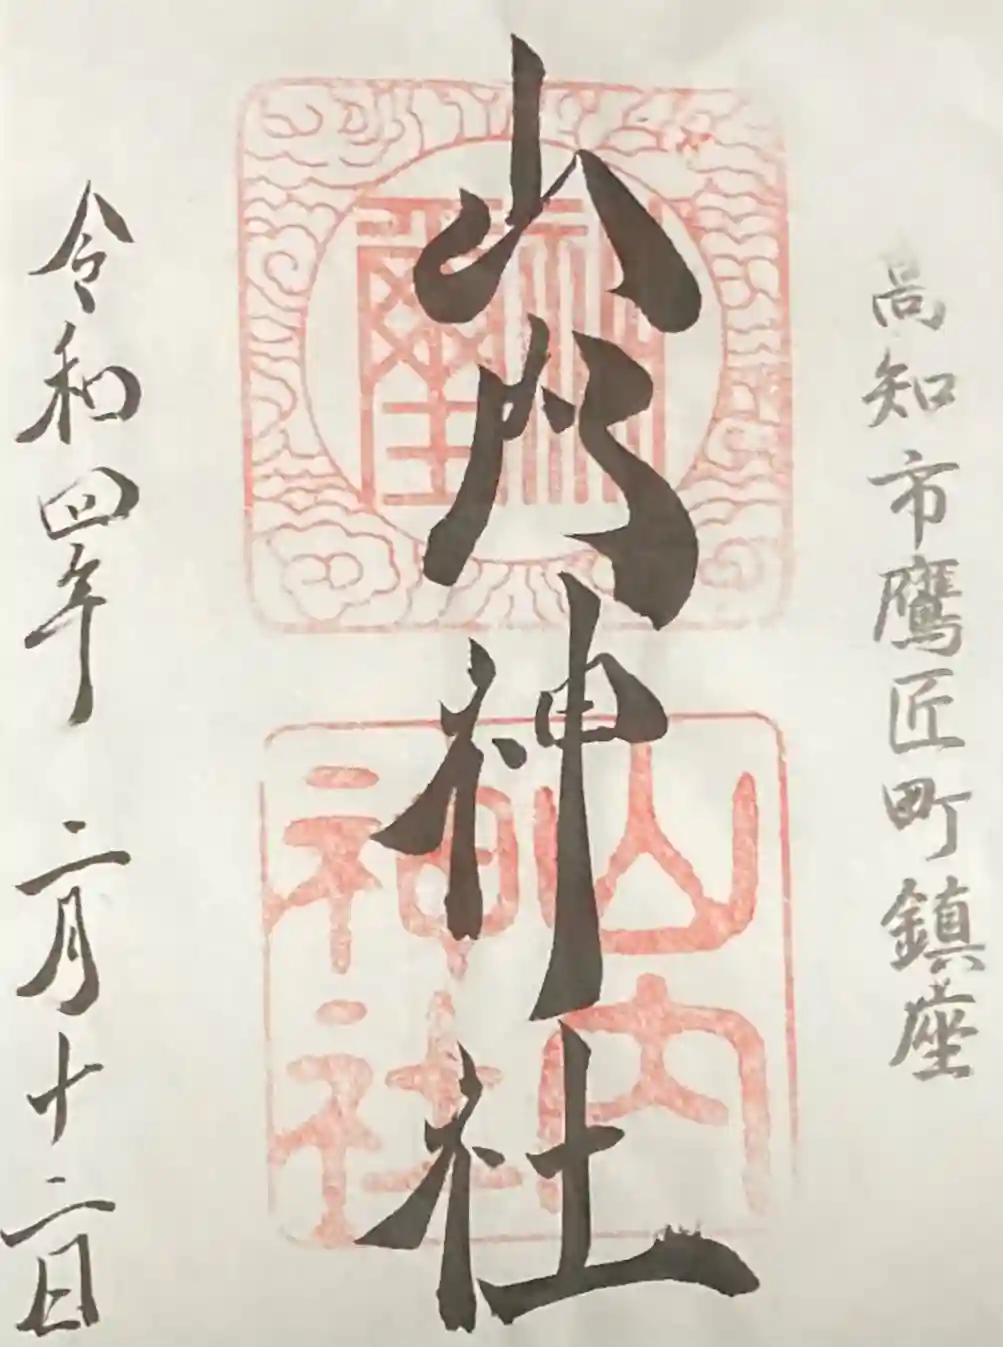 高知市鷹匠町鎮座
山内神社
山内神社
令和四年 二月十二日